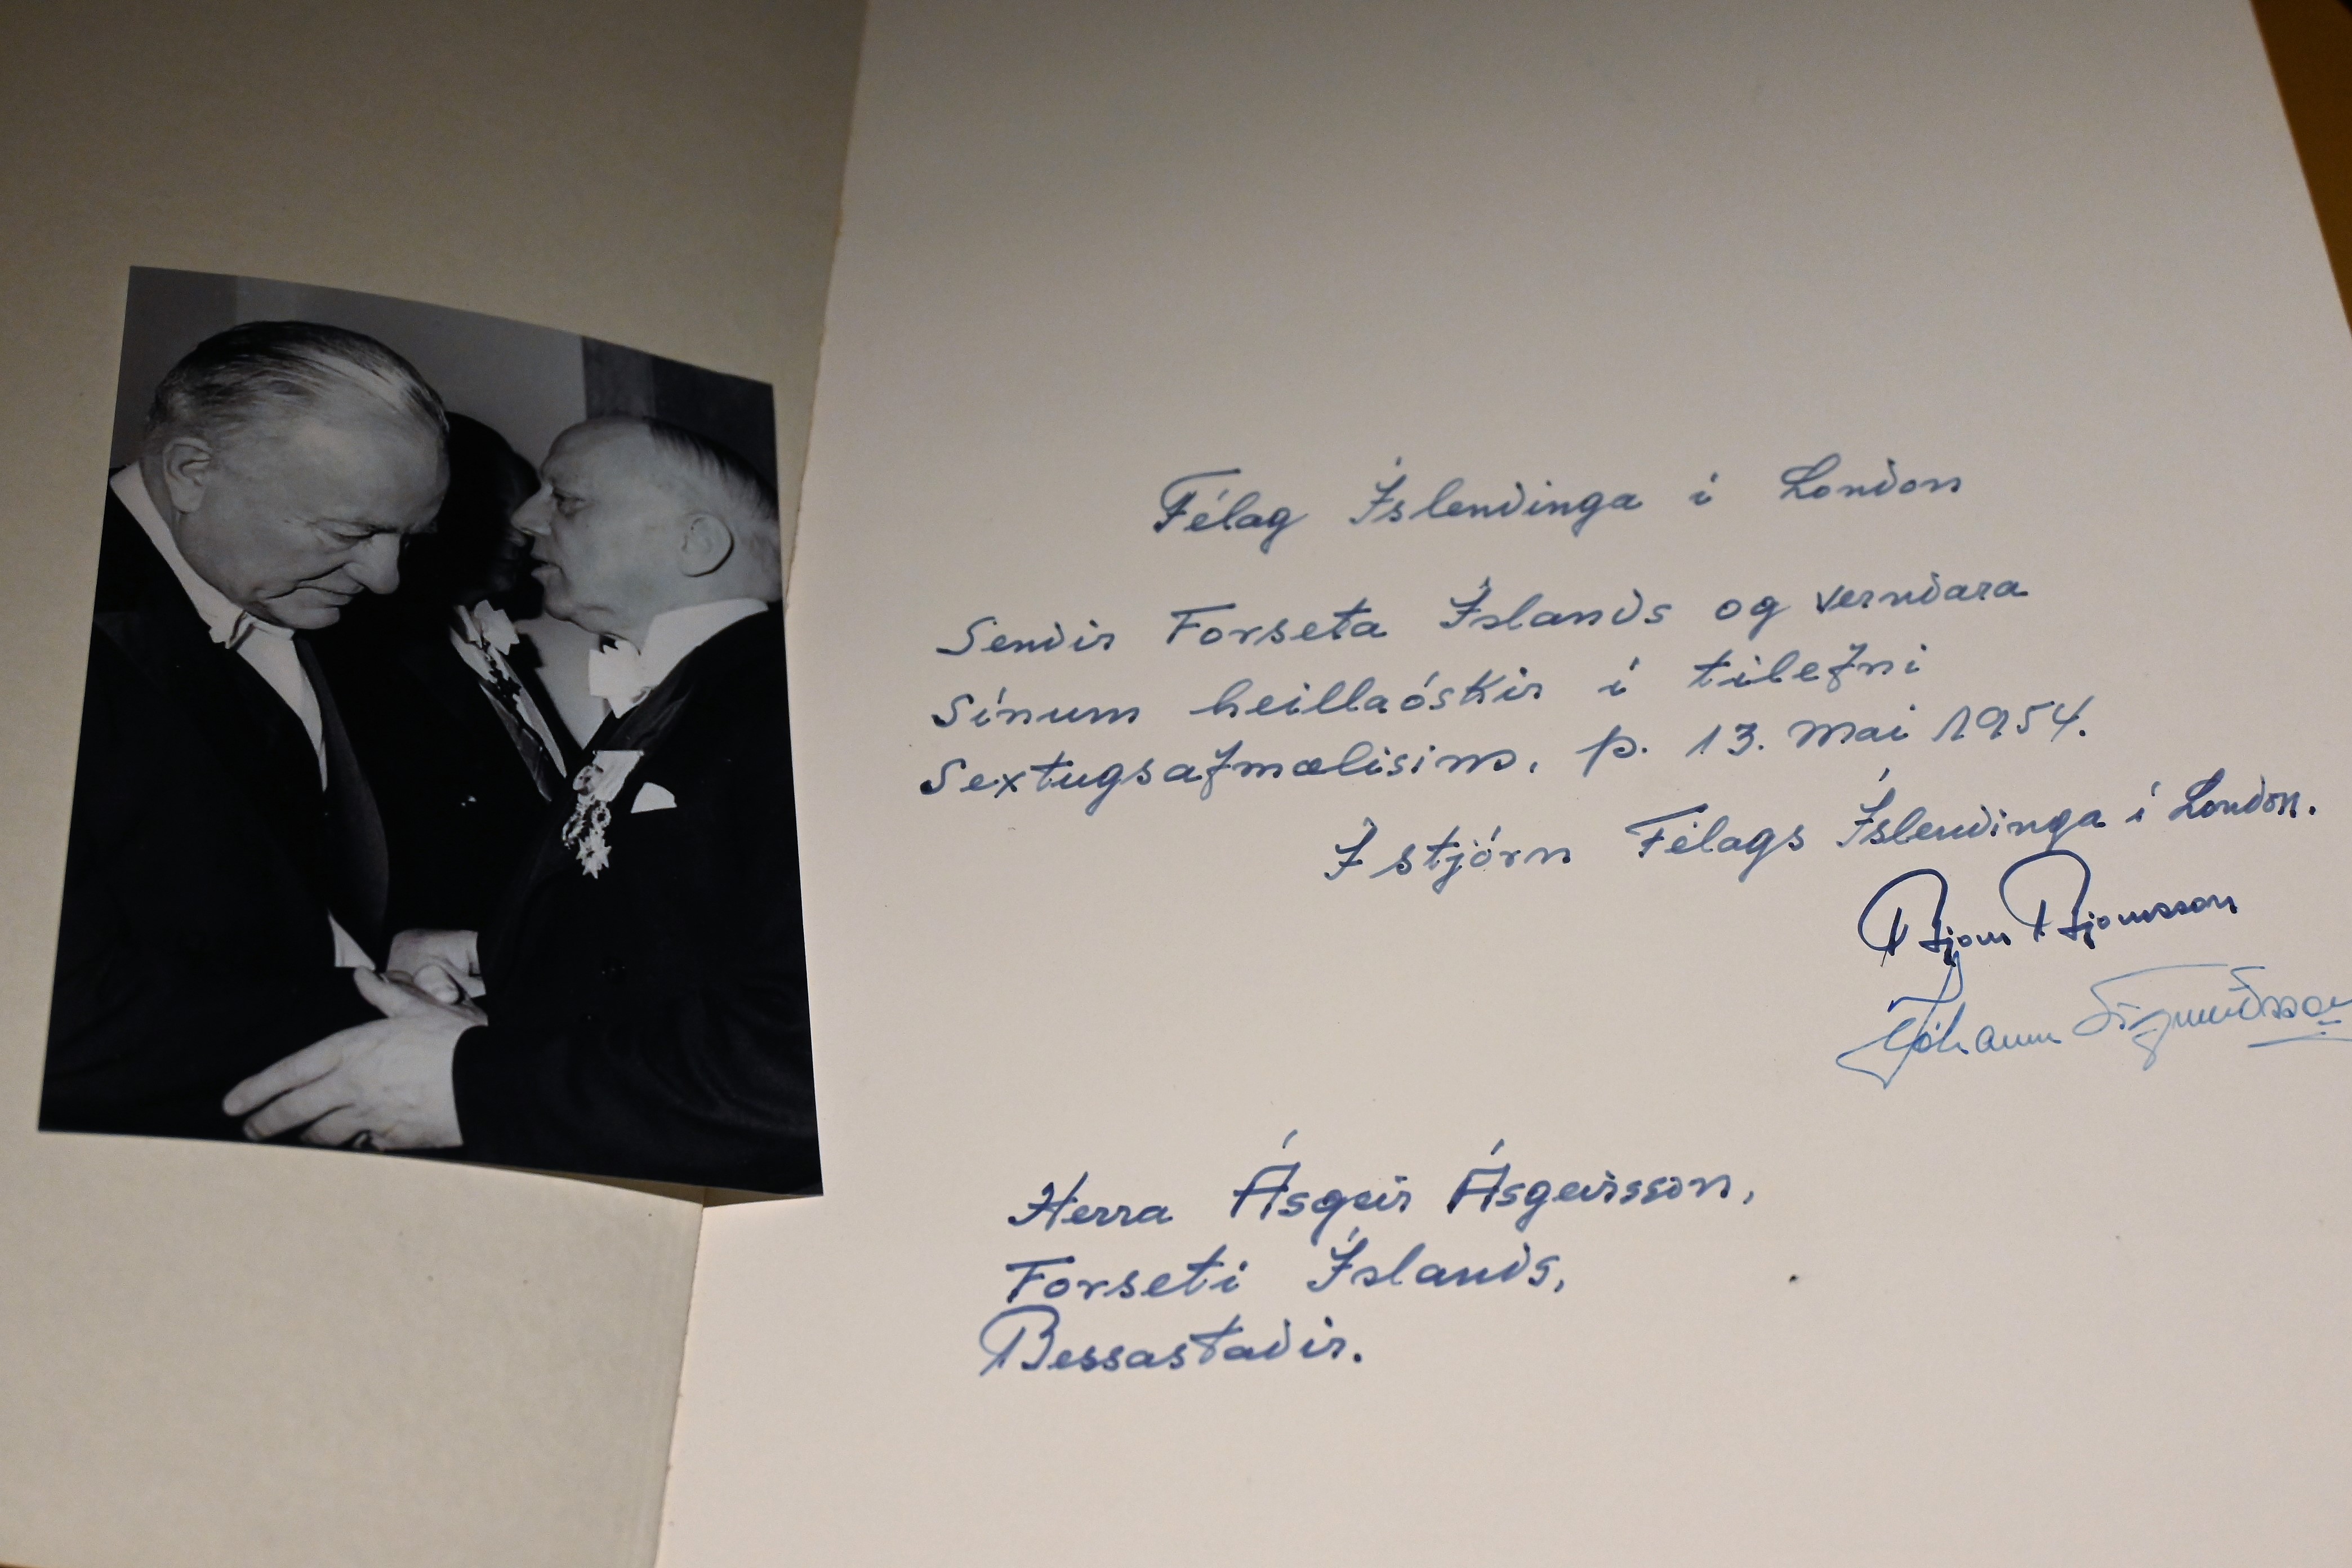 Félag Íslendinga í London
Sendir Forseta Íslands og verndara
Sínum heillaóskir í tilefni
Sextugsafmælisins, þ. 13. Mai 1954.
Í stjórn Félags Íslendinga í London.
Björn Björnsson
Jóhann Sigmundsson
Herra Ásgeir Ásgeirsson,
Forseti Íslands,
Bessastaðir.